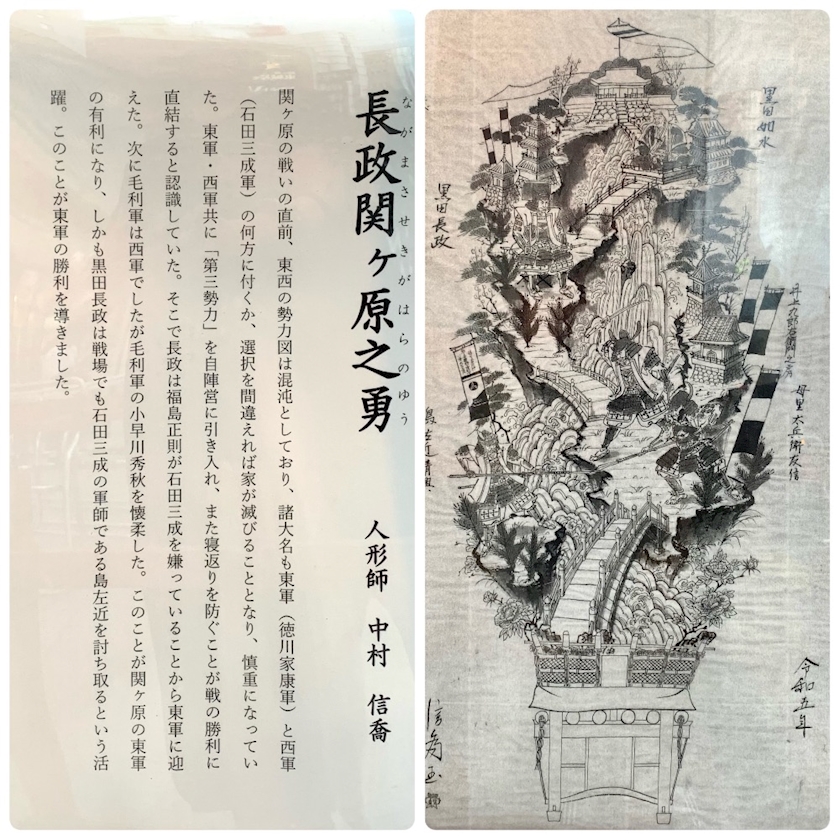 長政関ヶ原之勇
ながまさせきがはらのゆう
人形師 中村 信喬
関ヶ原の戦いの直前、東西の勢力図は混沌としており、諸大名も東軍（徳川家康軍）と西軍
（石田三成軍）の何方に付くか、選択を間違えれば家が滅びることとなり、慎重になってい
た。東軍・西軍共に「第三勢力」を自陣営に引き入れ、また寝返りを防ぐことが戦の勝利に
直結すると認識していた。そこで長政は福島正則が石田三成を嫌っていることから東軍に迎
えた。次に毛利軍は西軍でしたが毛利軍の小早川秀秋を懐柔した。このことが関ヶ原の東軍
の有利になり、しかも黒田長政は戦場でも石田三成の軍師である島左近を討ち取るという活
躍。このことが東軍の勝利を導きました。
黒田如水
黒田長政
井上九郎右衛門之房
母里太兵衛友信
島左近清興
令和五年